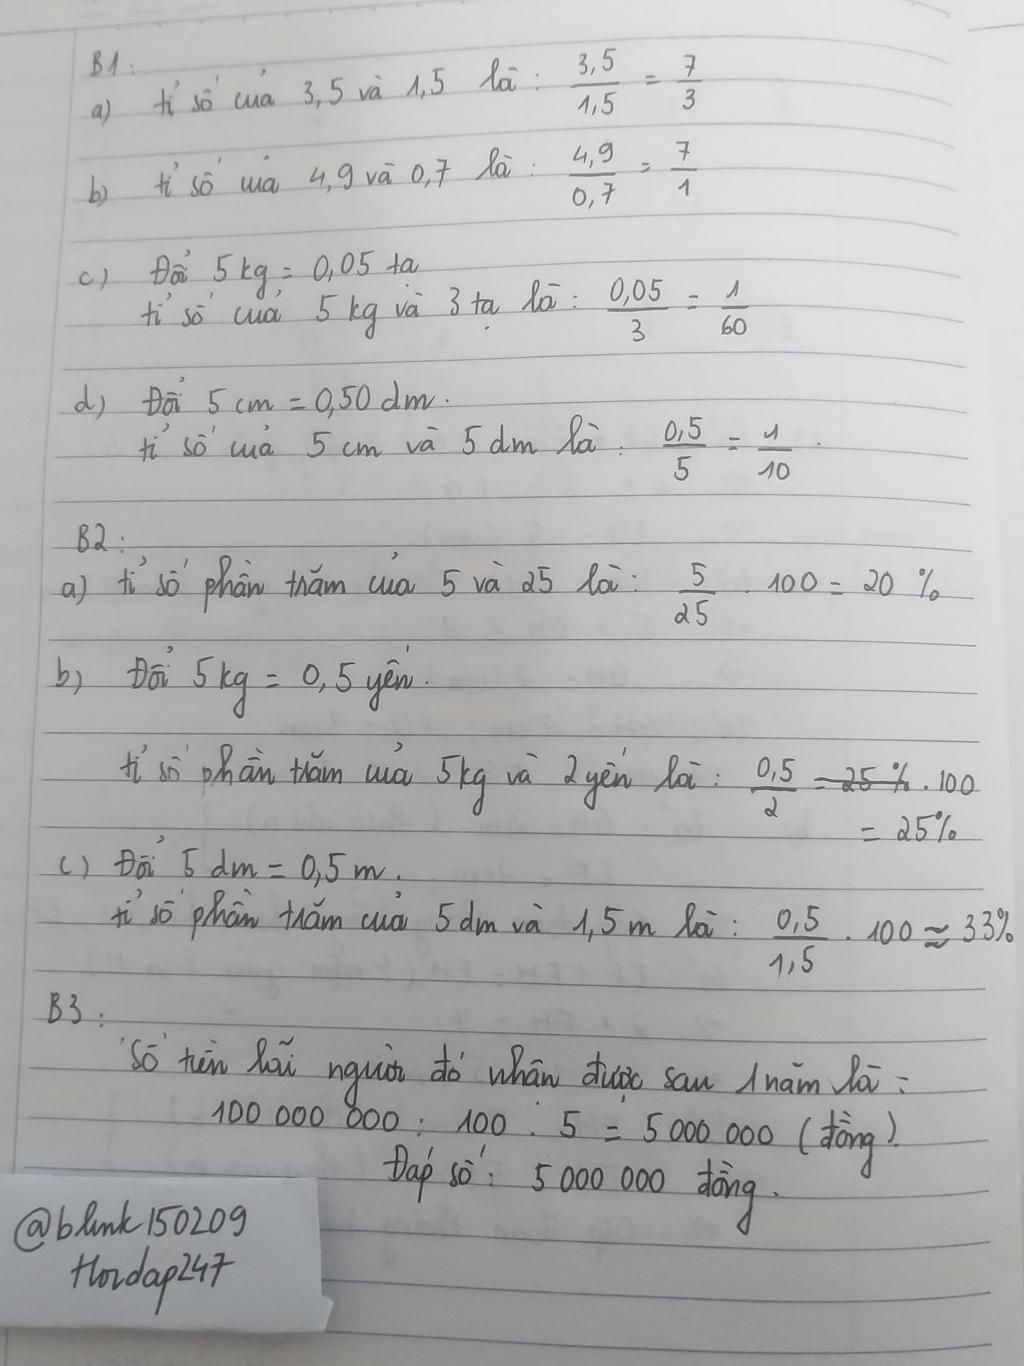 B1:
a) tỉ số của 3,5 và 1,5 là: 3,5/1,5 = 7/3
b) tỉ số của 4,9 và 0,7 là: 4,9/0,7 = 7/1
c) Đổi 5kg = 0,05 tạ
tỉ số của 5 kg và 3 tạ là: 0,05/3 = 1/60
d) Đổi 5 cm = 0,50 dm.
tỉ số của 5 cm và 5 dm là: 0,5/5 = 1/10.
B2:
a) tỉ số phần trăm của 5 và 25 là: 5/25 . 100 = 20 %
b) Đổi 5kg = 0,5 yến.
tỉ số phần trăm của 5kg và 2 yến là: 0,5/2 = 25% . 100
= 25%
c) Đổi 5 dm = 0,5 m.
tỉ số phần trăm của 5 dm và 1,5 m là: 0,5/1,5 . 100 ≈ 33%
B3:
Số tiền lãi người đó nhân được sau 1 năm là:
100 000 000 : 100 . 5 = 5 000 000 (đồng).
Đáp số: 5 000 000 đồng.
@blink150209
Hoidap247